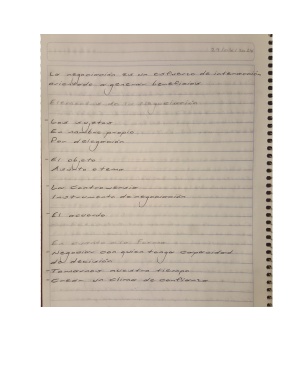 La negociación es un esfuerzo de interacción
orientado a generar beneficios
Elementos de la negociación
- Los sujetos
En nombre propio
Por delegación
- El objeto
Asunto o tema
- La controversia
Instrumento de negociación
- El acuerdo
- Negociar con quien tenga capacidad
de decisión
- Tomarnos nuestro tiempo
- Crear un clima de confianza